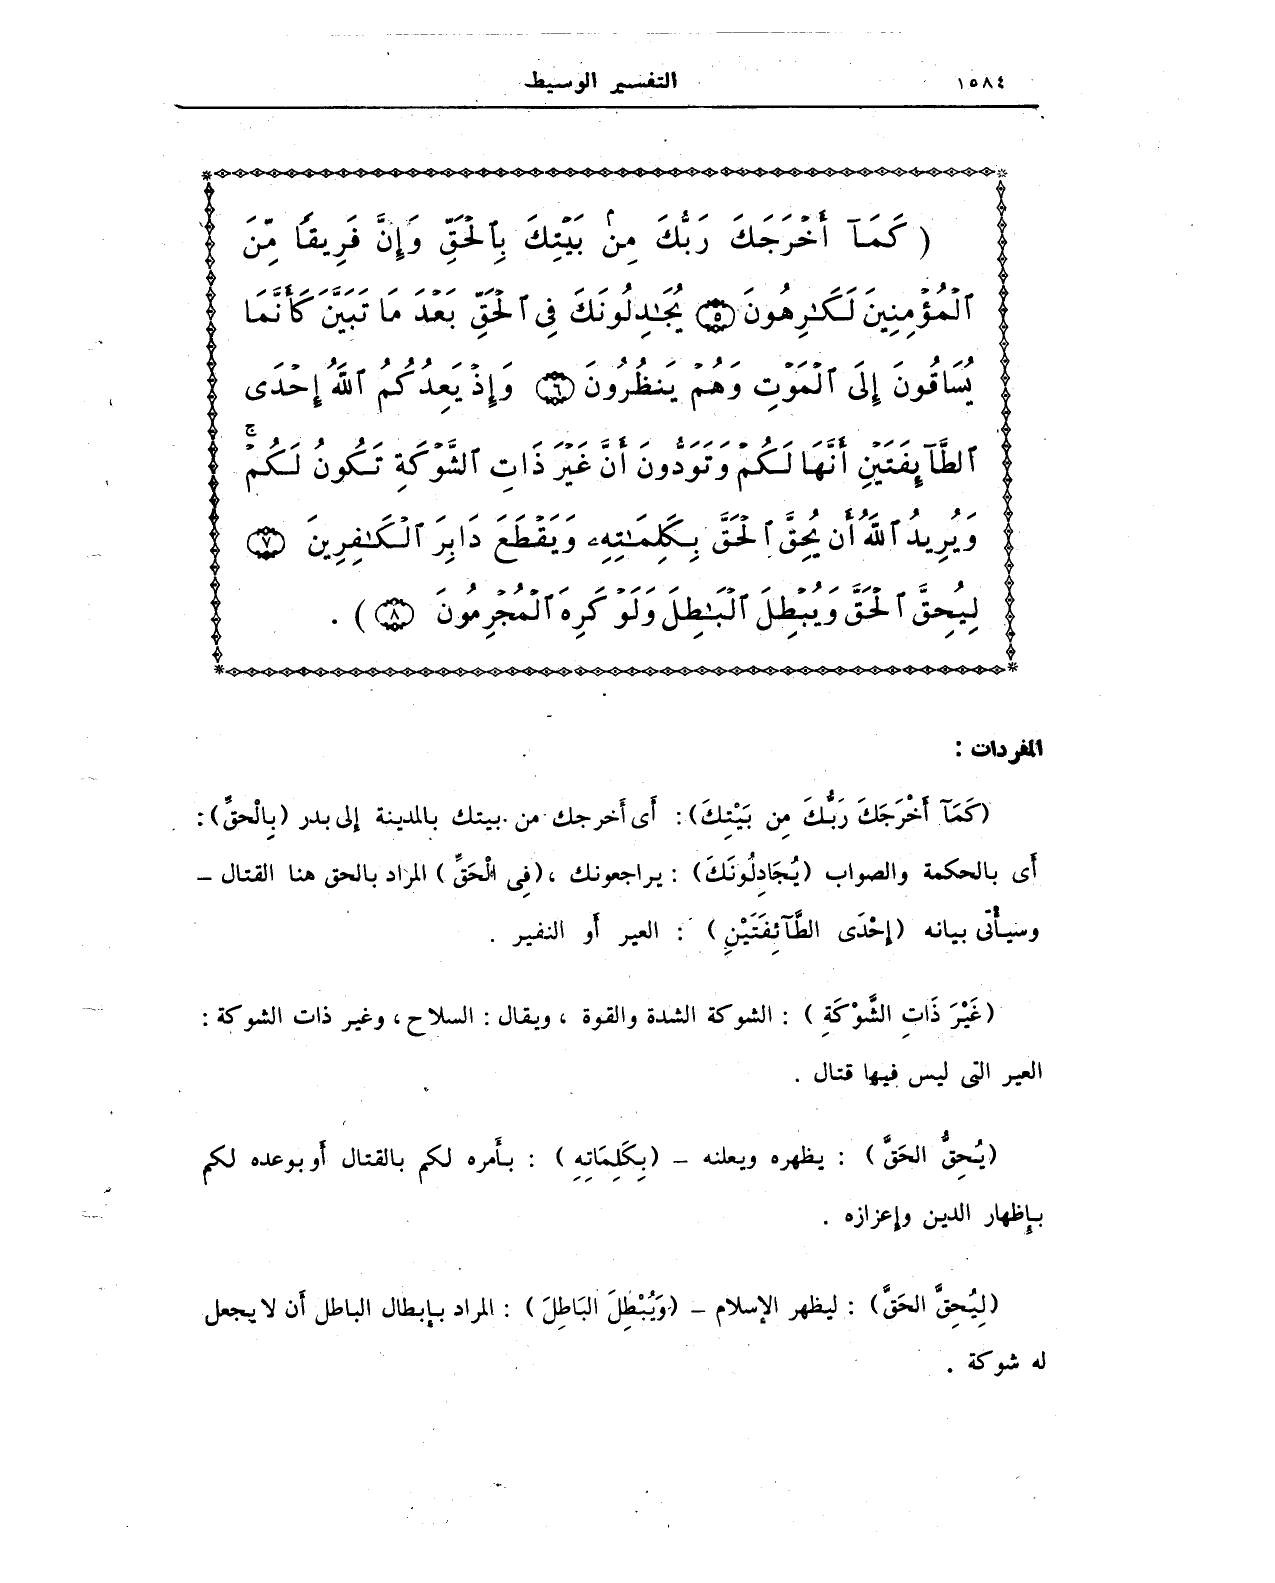 ١٥٨٤ التفسير الوسيط
( كَمَآ أَخْرَجَكَ رَبُّكَ مِنۢ بَيْتِكَ بِٱلْحَقِّ وَإِنَّ فَرِيقًا مِّنَ
ٱلْمُؤْمِنِينَ لَكَـٰرِهُونَ ۝٥ يُجَـٰدِلُونَكَ فِى ٱلْحَقِّ بَعْدَ مَا تَبَيَّنَ كَأَنَّمَا
يُسَاقُونَ إِلَى ٱلْمَوْتِ وَهُمْ يَنظُرُونَ ۝٦ وَإِذْ يَعِدُكُمُ ٱللَّهُ إِحْدَى
ٱلطَّآئِفَتَيْنِ أَنَّهَا لَكُمْ وَتَوَدُّونَ أَنَّ غَيْرَ ذَاتِ ٱلشَّوْكَةِ تَكُونُ لَكُمْ ۚ
وَيُرِيدُ ٱللَّهُ أَن يُحِقَّ ٱلْحَقَّ بِكَلِمَـٰتِهِۦ وَيَقْطَعَ دَابِرَ ٱلْكَـٰفِرِينَ ۝٧
لِيُحِقَّ ٱلْحَقَّ وَيُبْطِلَ ٱلْبَـٰطِلَ وَلَوْ كَرِهَ ٱلْمُجْرِمُونَ ۝٨ ) .
المفردات :
(كَمَآ أَخْرَجَكَ رَبُّكَ مِن بَيْتِكَ): أى أخرجك من بيتك بالمدينة إلى بدر (بِالْحَقِّ):
أى بالحكمة والصواب (يُجَادِلُونَكَ) : يراجعونك ، (فِى الْحَقِّ) المراد بالحق هنا القتال –
وسيأتى بيانه (إِحْدَى الطَّآئِفَتَيْنِ) : العير أو النفير .
(غَيْرَ ذَاتِ الشَّوْكَةِ) : الشوكة الشدة والقوة ، ويقال : السلاح ، وغير ذات الشوكة :
العير التى ليس فيها قتال .
(يُحِقُّ الحَقَّ) : يظهره ويعلنه – (بِكَلِمَاتِهِ) : بأمره لكم بالقتال أو بوعده لكم
بإظهار الدين وإعزازه .
(لِيُحِقَّ الحَقَّ) : ليظهر الإسلام – (وَيُبْطِلَ البَاطِلَ) : المراد بإبطال الباطل أن لا يجعل
له شوكة .